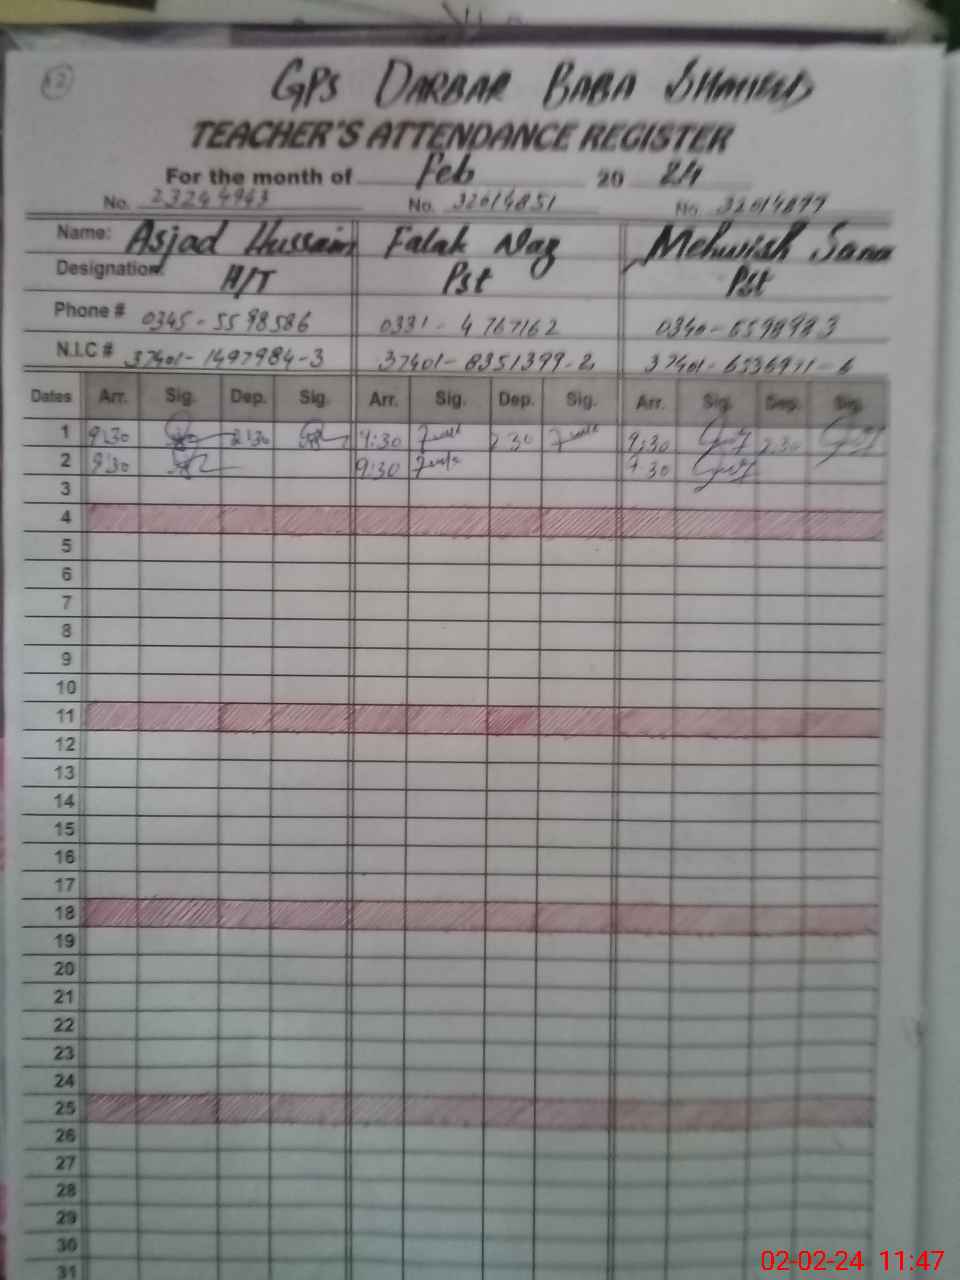 12
GPS DARBAR BABA SHAHEED
TEACHER'S ATTENDANCE REGISTER
For the month of Feb 20 24
No. 23244943 No. 32014851 No. 32014877
Name: Asjad Hussain Falak Naz Mehwish Sana
Designation: H/T Pst Pst
Phone # 0345-5598586 0331-4767162 0340-5598983
N.I.C # 37401-1497984-3 37401-8351399-2 37401-6536971-6
Dates Arr. Sig. Dep. Sig. Arr. Sig. Dep. Sig. Arr. Sig. Dep. Sig.
1 9:30 2:30 9:30 2:30 9:30 2:30
2 9:30 9:30 9:30
3
4
5
6
7
8
9
10
11
12
13
14
15
16
17
18
19
20
21
22
23
24
25
26
27
28
29
30
31
02-02-24 11:47